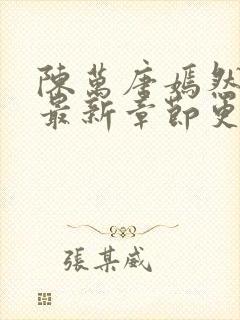 陳萬唐嫣然
最新章節更
張某威